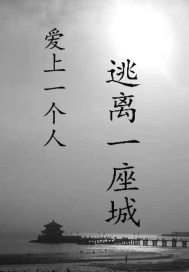 爱上一个人
逃离一座城